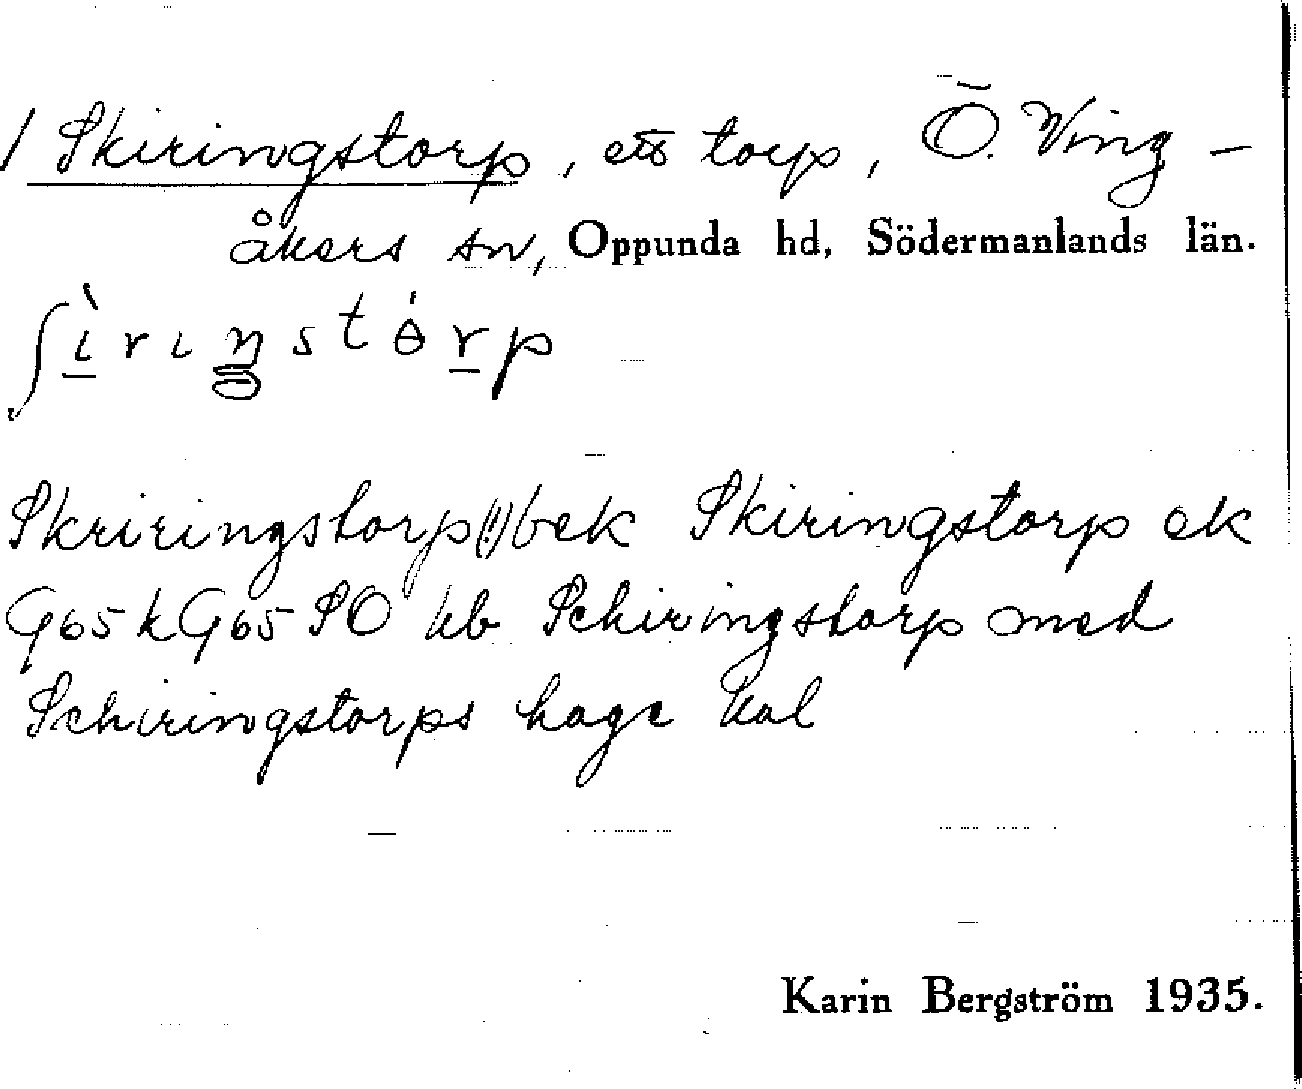 1 Skiringstorp, ett torp, Ö. Ving-
åkers sn, Oppunda hd, Södermanlands län.
ʃìrɩŋstórp
Skriringstorp(!) bek Skiringstorp ek
G65 k G65 SO hb Schiringstorp med
Schiringstorps hage kal
Karin Bergström 1935.